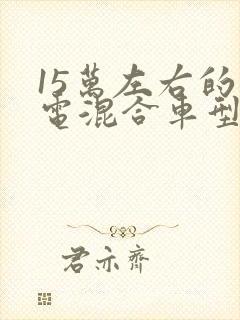 15萬左右的
電混合車型
君亦齊